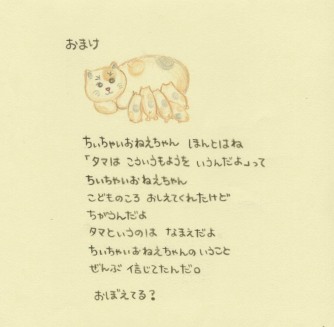 おまけ
ちぃちゃいおねえちゃん ほんとはね
「タマは こういうもようを いうんだよ」って
ちぃちゃいおねえちゃん
こどものころ おしえてくれたけど
ちがうんだよ
タマというのは なまえだよ
ちぃちゃいおねえちゃんのいうこと
ぜんぶ 信じてたんだ。
おぼえてる?